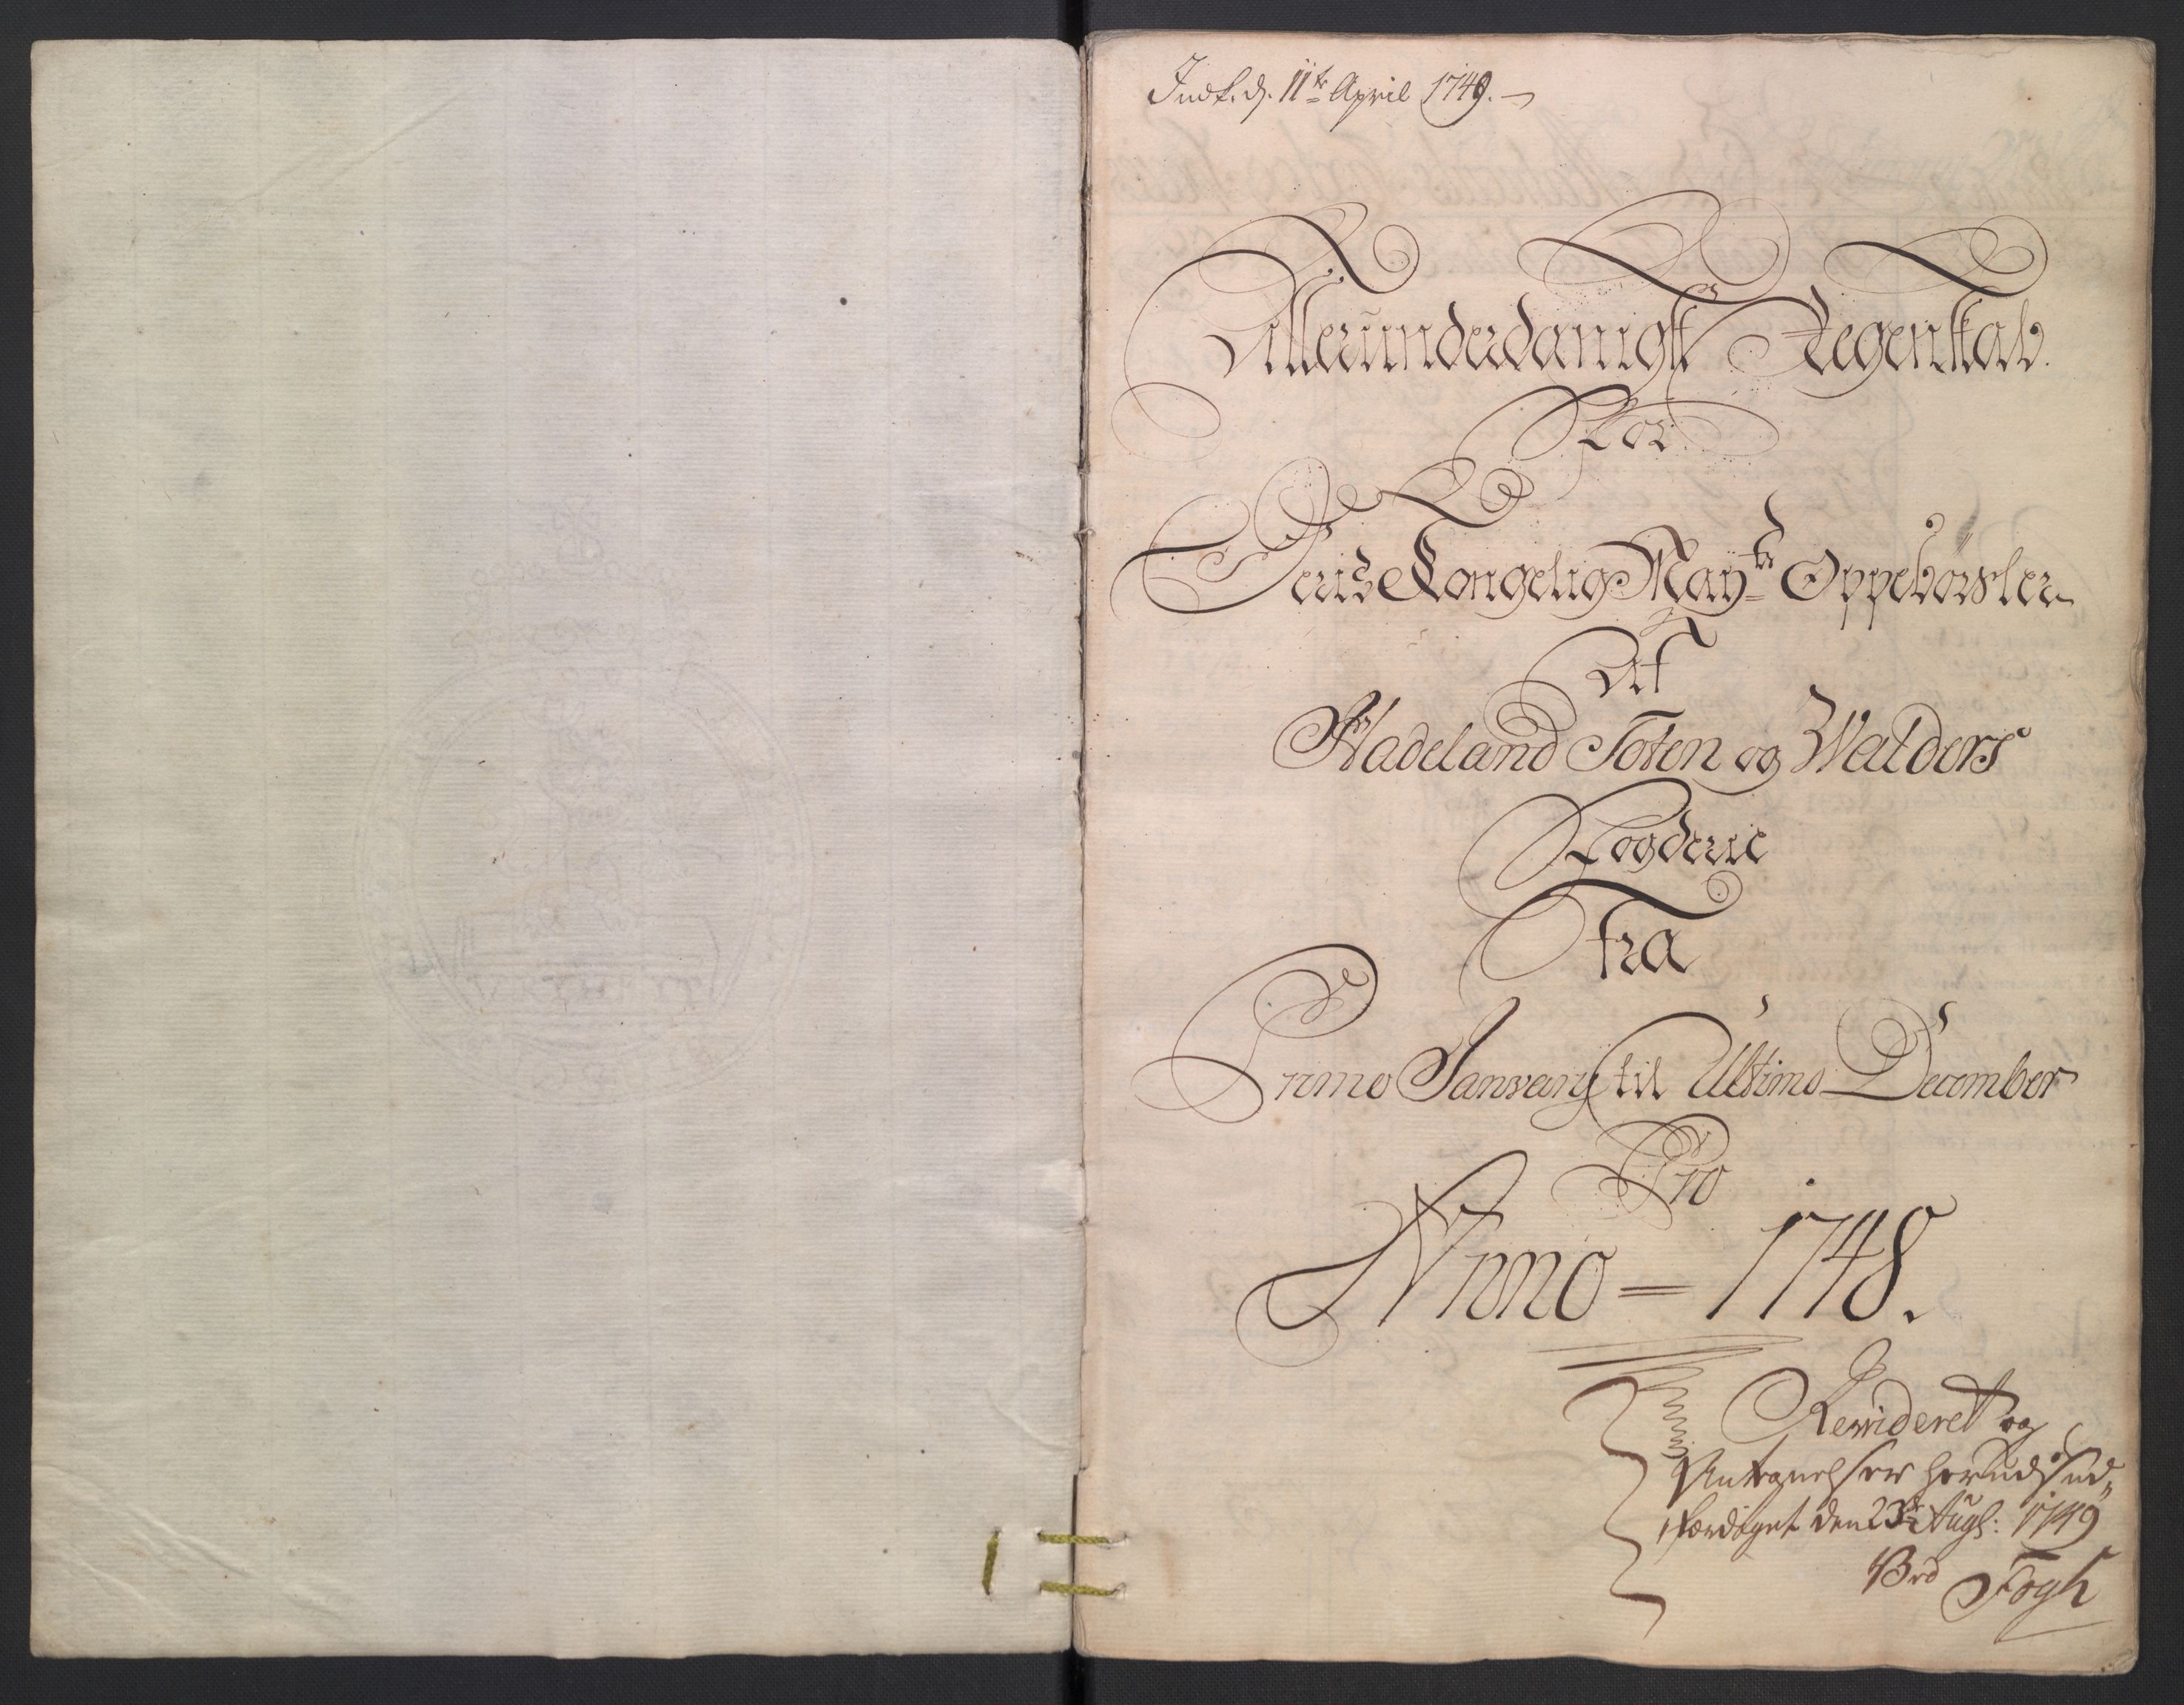 Indk. d. 11te April 1749.
Allerunderdanigst Regenskab
For
Deris Kongelig Maytz Oppebørsler
Af
Hadeland Toten og Walders
Fogderie
Fra
Primo Janvary til Ultimo December
Pro
Anno = 1748.
Revideret og
Antegnelser herudj ud„
færdiget den 23de Augs: 1749
Fogh